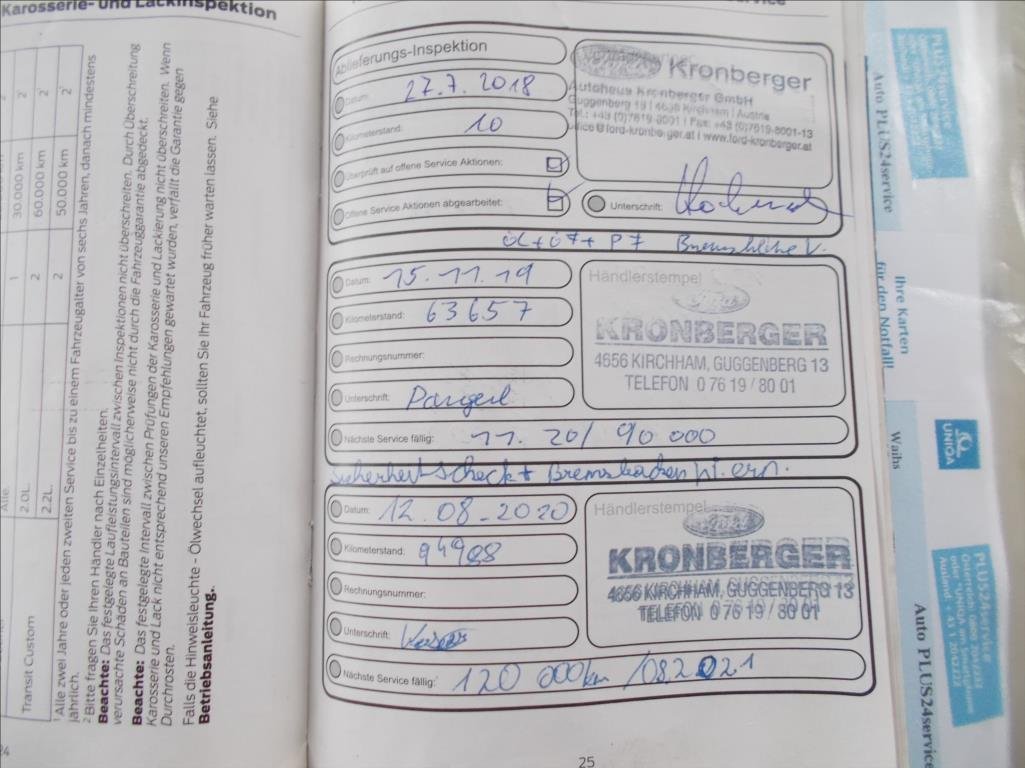 Karosserie- und Lackinspektion
Alle.
Transit Custom
2.0L.
2.2L.
1
2
2
30.000 km
60.000 km
50.000 km
2
2
¹ Alle zwei Jahre oder jeden zweiten Service bis zu einem Fahrzeugalter von sechs Jahren, danach mindestens
jährlich.
² Bitte fragen Sie Ihren Händler nach Einzelheiten.
Beachte: Das festgelegte Laufleistungsintervall zwischen Inspektionen nicht überschreiten. Durch Überschreitung
verursachte Schäden an Bauteilen sind möglicherweise nicht durch die Fahrzeuggarantie abgedeckt.
Beachte: Das festgelegte Intervall zwischen Prüfungen der Karosserie und Lackierung nicht überschreiten. Wenn
Karosserie und Lack nicht entsprechend unseren Empfehlungen gewartet wurden, verfällt die Garantie gegen
Durchrosten.
Falls die Hinweisleuchte - Ölwechsel aufleuchtet, sollten Sie Ihr Fahrzeug früher warten lassen. Siehe
Betriebsanleitung.
24
Ablieferungs-Inspektion
Datum: 27.7. 2018
Kilometerstand: 10
Überprüft auf offene Service Aktionen:
Offene Service Aktionen abgearbeitet:
Kronberger
Autohaus Kronberger GmbH
Guggenberg 19 | 4656 Kirchham | Austria
Tel.: +43 (0)7619-8001 | Fax: +43 (0)7619-8001-13
office@ford-kronberger.at | www.ford-kronberger.at
Unterschrift:
Datum: 15.11.19
Kilometerstand: 63657
Rechnungsnummer:
Unterschrift: Pangerl
Nächste Service fällig: 11. 20/ 90 000
Händlerstempel
Ford
KRONBERGER
4656 KIRCHHAM, GUGGENBERG 13
TELEFON 0 76 19 / 80 01
Sicherheitscheck + Bremsbacken hi. ern.
Datum: 12.08-2020
Kilometerstand: 94988
Rechnungsnummer:
Unterschrift:
Nächste Service fällig: 120 000km /082021
Händlerstempel
Ford
KRONBERGER
4656 KIRCHHAM, GUGGENBERG 13
TELEFON 0 76 19 / 80 01
25
PLUS24service
Auto PLUS24service
Ihre Karten
für den Notfall!
UNIQA
Waihs
PLUS24service
Österreich: 0800 204 2222
oder UNIQA am Smartphone
Ausland + 43 1 204 2222
Auto PLUS24service